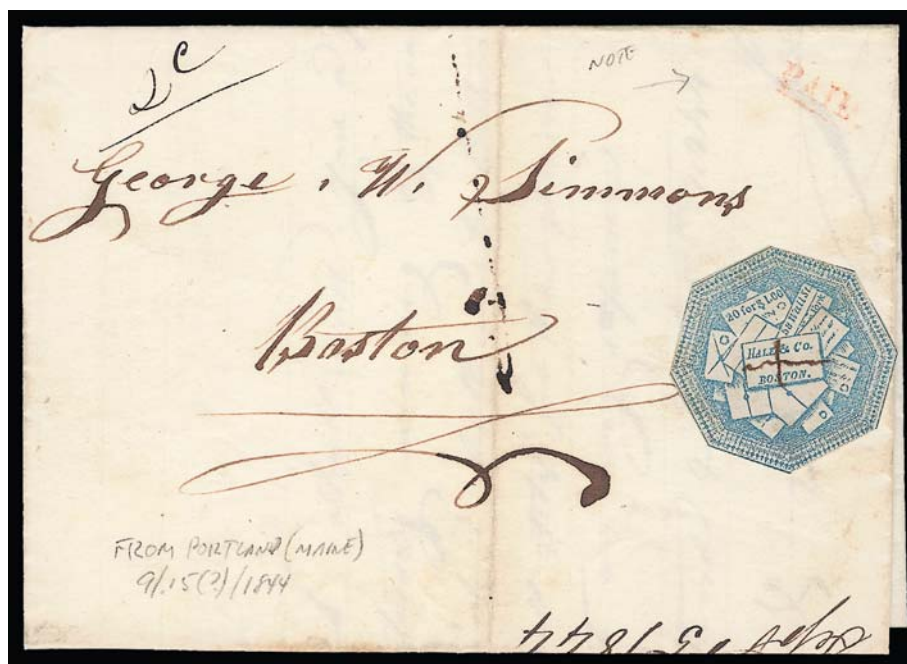 2c
NOTE
PAID
George . W. Simmons
Boston
20 for $1.00
HALE & Co.
BOSTON.
FROM PORTLAND (MAINE)
9/15(?)/1844
Sept 15 1844